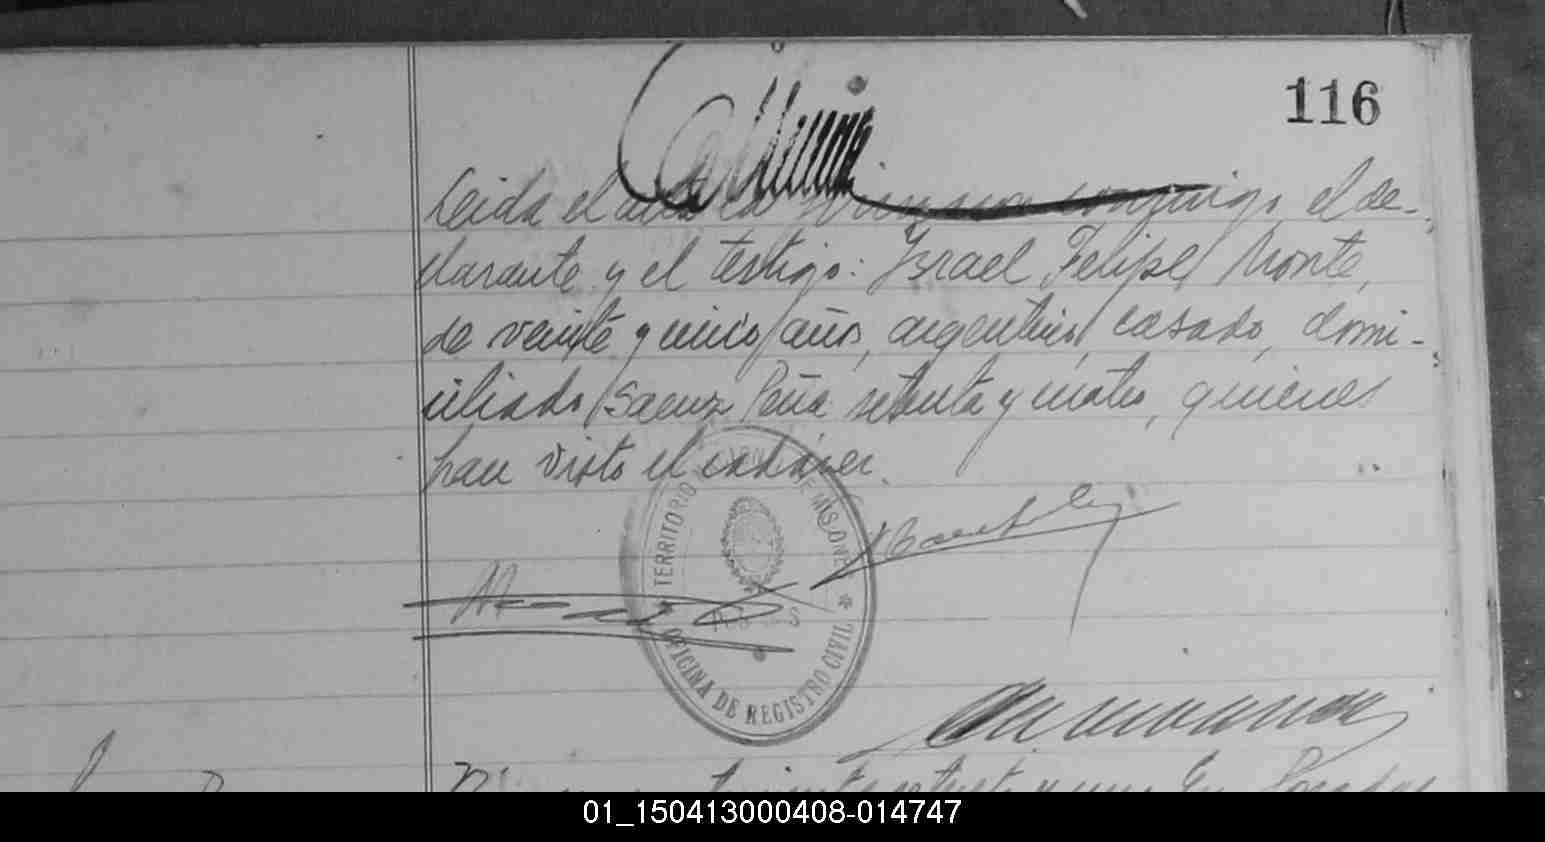 116
Leida el acta la firmaron conmigo, el de-
clarante y el testigo: Israel Felipe Monte,
de veinte y cinco años, argentino, casado, domi-
ciliado Saenz Peña setenta y cuatro, quienes
han visto el cadaver.
TERRITORIO DE MISIONES
OFICINA DE REGISTRO CIVIL
01_150413000408-014747